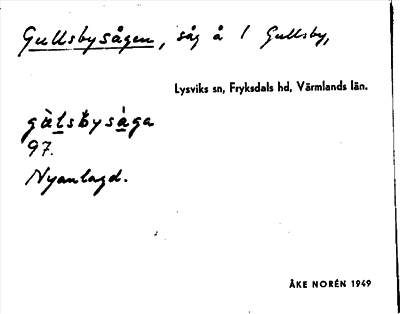 Gullsbysågen, såg å 1 Gullsby,
Lysviks sn, Fryksdals hd, Värmlands län.
gàlsbysåga
97.
Nyanlagd.
ÅKE NORÉN 1949